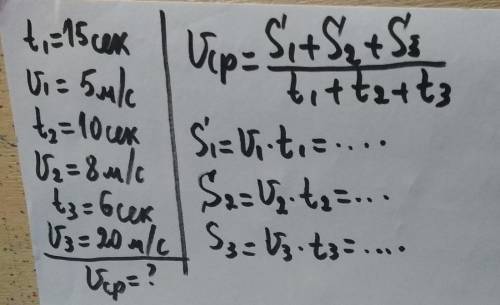 t₁=15сек
υ₁=5м/с
t₂=10сек
υ₂=8м/с
t₃=6сек
υ₃=20м/с
υср=?
υср= S₁+S₂+S₃
t₁+t₂+t₃
S₁=υ₁·t₁=....
S₂=υ₂·t₂=...
S₃=υ₃·t₃=....